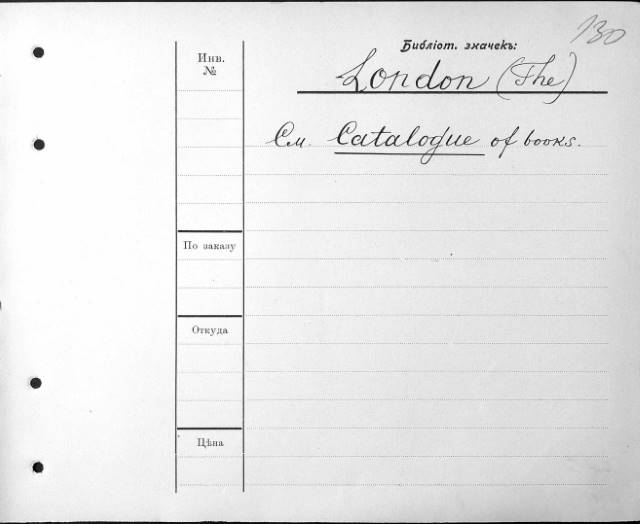 130
Библіот. значекъ:
London (The)
См. Catalogue of books.
Инв.
№
По заказу
Откуда
Цѣна